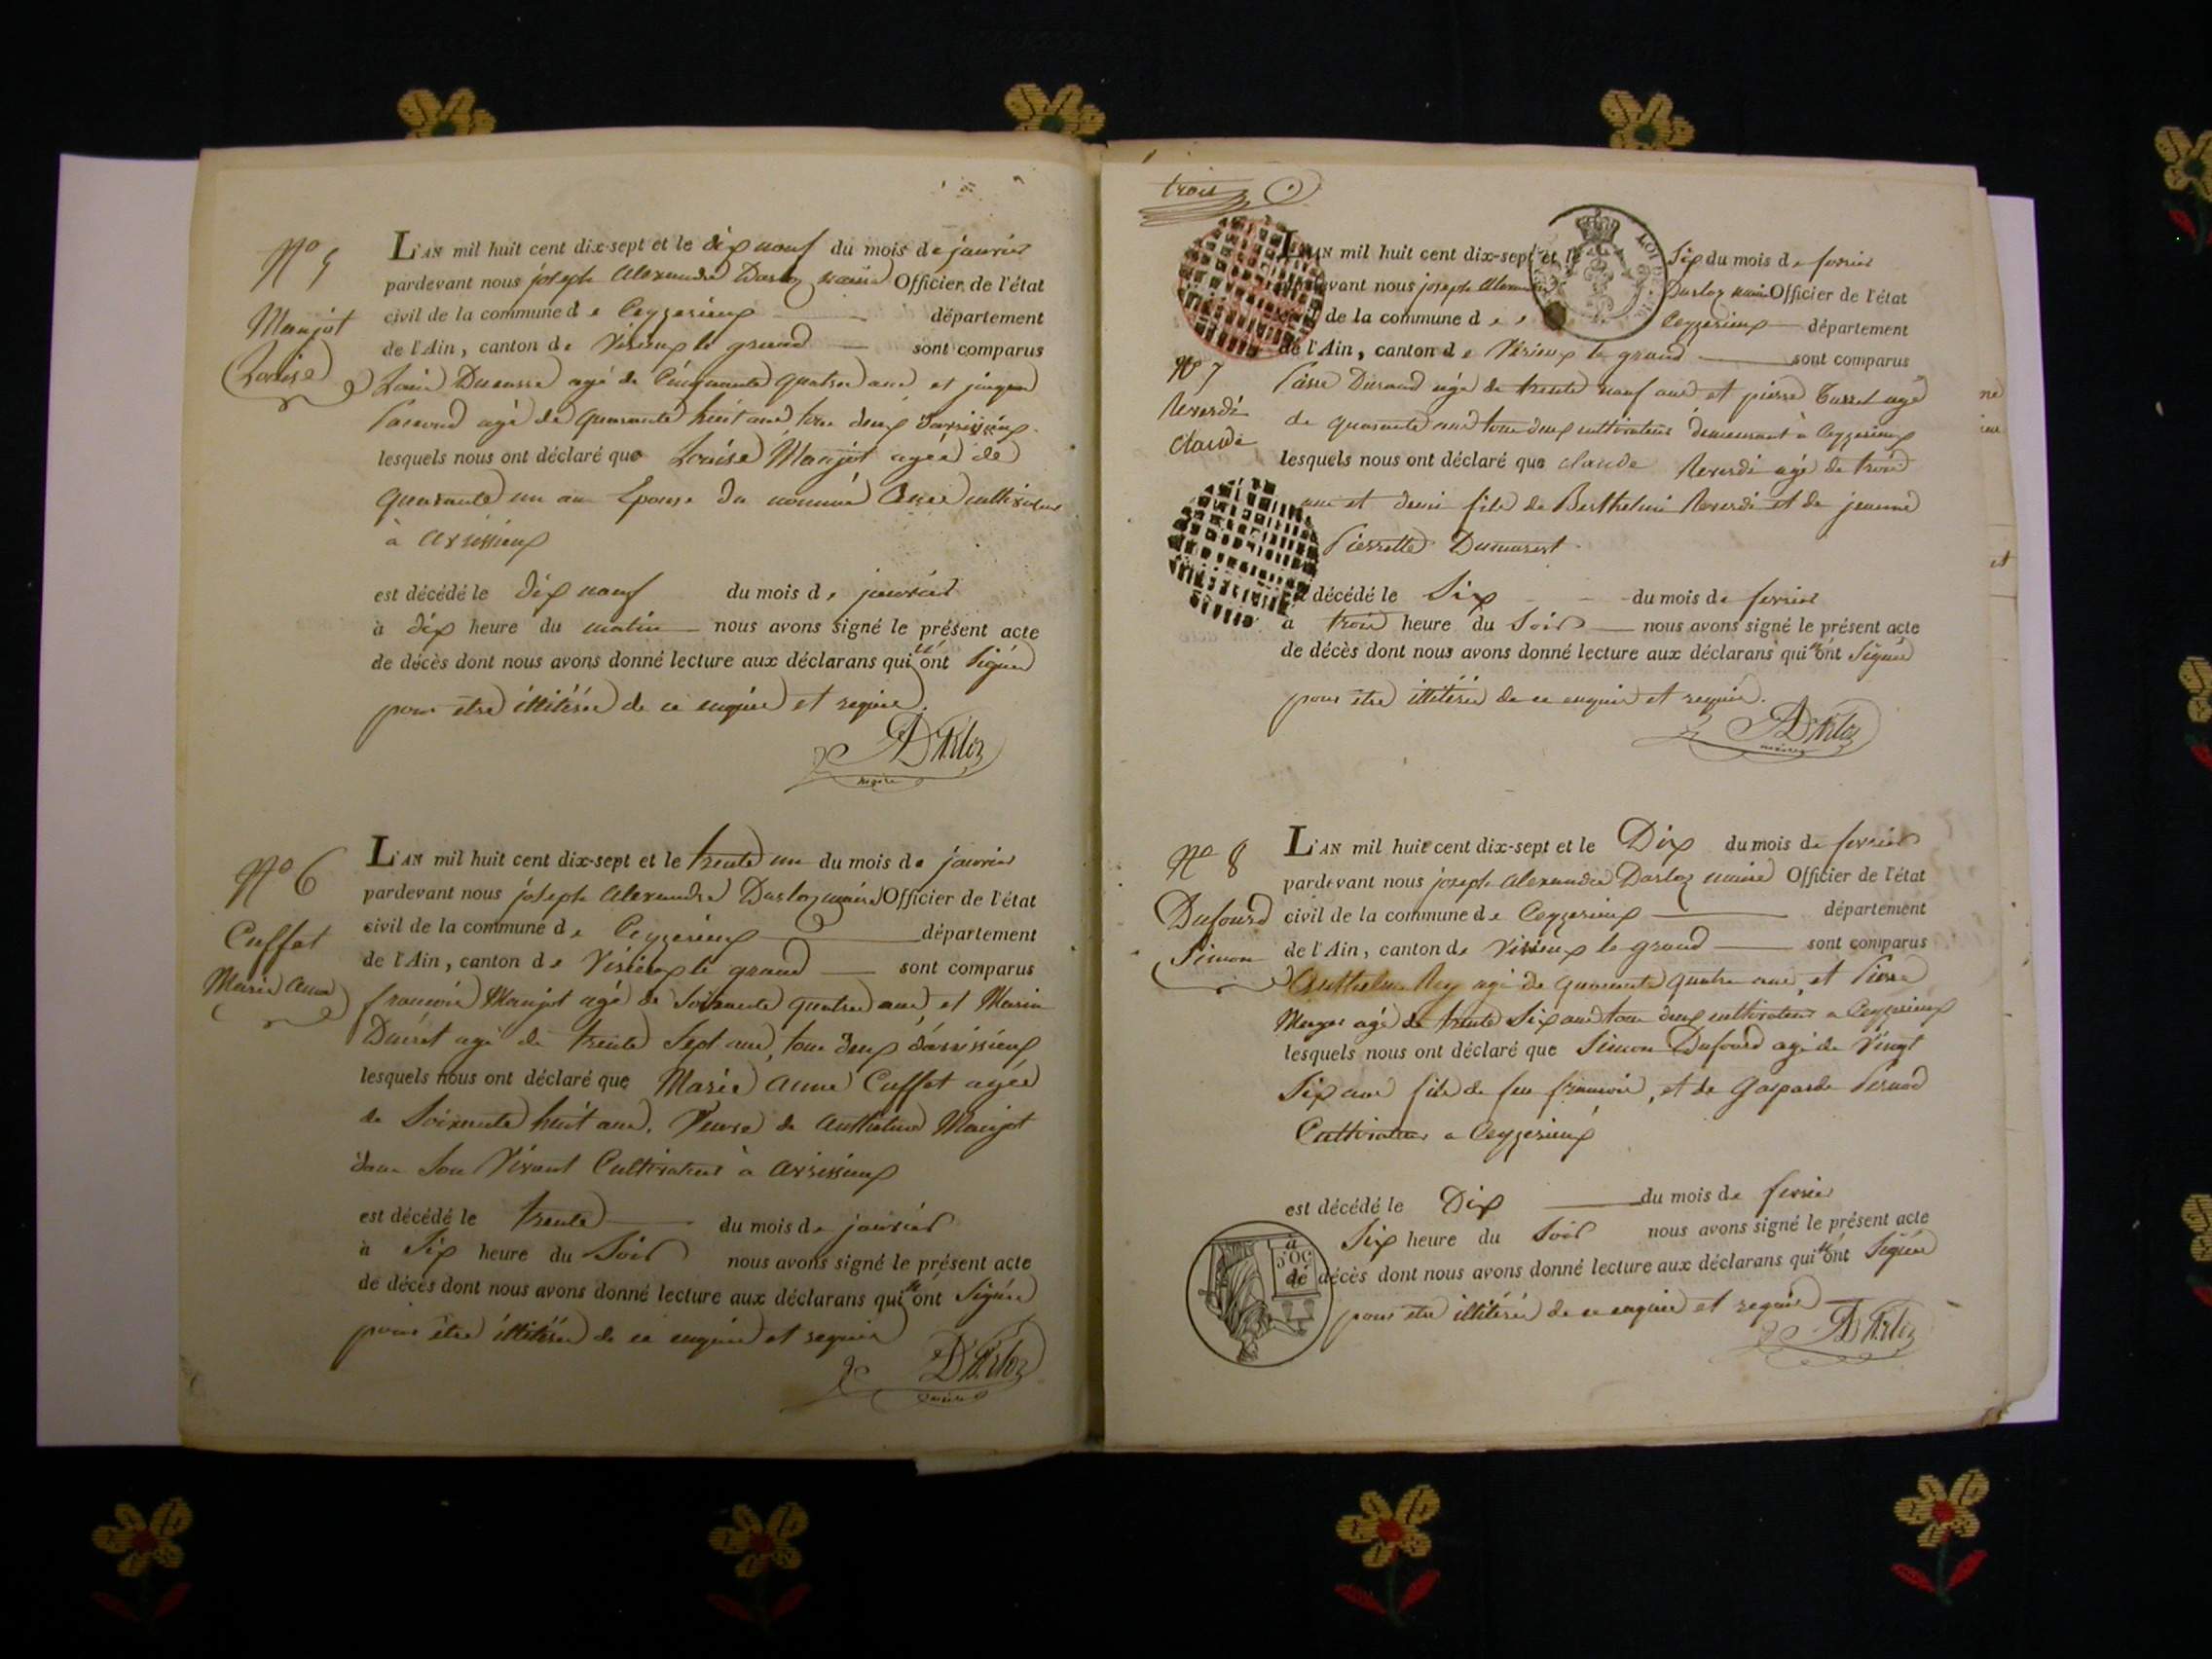 N° 5
Manjot
Louise
L'AN mil huit cent dix-sept et le dix neuf du mois de janvier
pardevant nous joseph alexandre Darloz maire Officier de l'état
civil de la commune de Ceyzerieux département
de l'Ain, canton de Virieux le grand sont comparus
agé de Cinquante quatre ans et
agé de quarante huit ans tous deux
lesquels nous ont déclaré que Louise Manjot agée de
quarante un an Epouse du nommé cultivateur
à avrissieux
est décédé le dix neuf du mois de janvier
à dix heure du matin nous avons signé le présent acte
de décès dont nous avons donné lecture aux déclarans qui n'ont signés
pour être illitérés de ce enquis et requis.
DArloz
maire
N° 6
Cuffet
Marie anne
L'AN mil huit cent dix-sept et le trente un du mois de janvier
pardevant nous joseph alexandre Darloz maire Officier de l'état
civil de la commune de Ceyzerieux département
de l'Ain, canton de Virieux le grand sont comparus
francois Manjot agé de soixante quatre ans, et
agé de trente sept ans, tous deux d'avrissieux
lesquels nous ont déclaré que Marie anne Cuffet agée
de soixante huit ans, Veuve de anthelme Manjot
dans son Vivant Cultivateur à avrissieux
est décédé le trente du mois de janvier
à six heure du soir nous avons signé le présent acte
de décès dont nous avons donné lecture aux déclarans qui n'ont signés
pour être illitérés de ce enquis et requis
DArloz
maire
trois
L'AN mil huit cent dix-sept et le six du mois de fevrier
pardevant nous joseph alexandre Darloz maire Officier de l'état
civil de la commune de Ceyzerieux département
de l'Ain, canton de Virieux le grand sont comparus
N° 7
Reverdi
claude
Pierre Durand agé de trente neuf ans et pierre agé
de quarante ans tous deux cultivateurs demeurant à Ceyzerieux
lesquels nous ont déclaré que claude Reverdi agé de trois
ans et demi fils de Berthelmi Reverdi et de jeanne
Pierrette Dumarest
est décédé le six du mois de fevrier
à trois heure du soir nous avons signé le présent acte
de décès dont nous avons donné lecture aux déclarans qui n'ont signés
pour être illitérés de ce enquis et requis.
DArloz
maire
N° 8
Dufourd
Simon
L'AN mil huit cent dix-sept et le Dix du mois de fevrier
pardevant nous joseph alexandre Darloz maire Officier de l'état
civil de la commune de Ceyzerieux département
de l'Ain, canton de Virieux le grand sont comparus
Anthelme Rey agé de quarante quatre ans, et Pierre
agé de trente six ans tous deux cultivateurs a Ceyzerieux
lesquels nous ont déclaré que Simon Dufourd agé de Vingt
six ans fils de feu francois, et de Gasparde
Cultivateur a Ceyzerieux
est décédé le Dix du mois de fevrier
à six heure du soir nous avons signé le présent acte
de décès dont nous avons donné lecture aux déclarans qui n'ont signés
pour être illitérés de ce enquis et requis
DArloz
50C